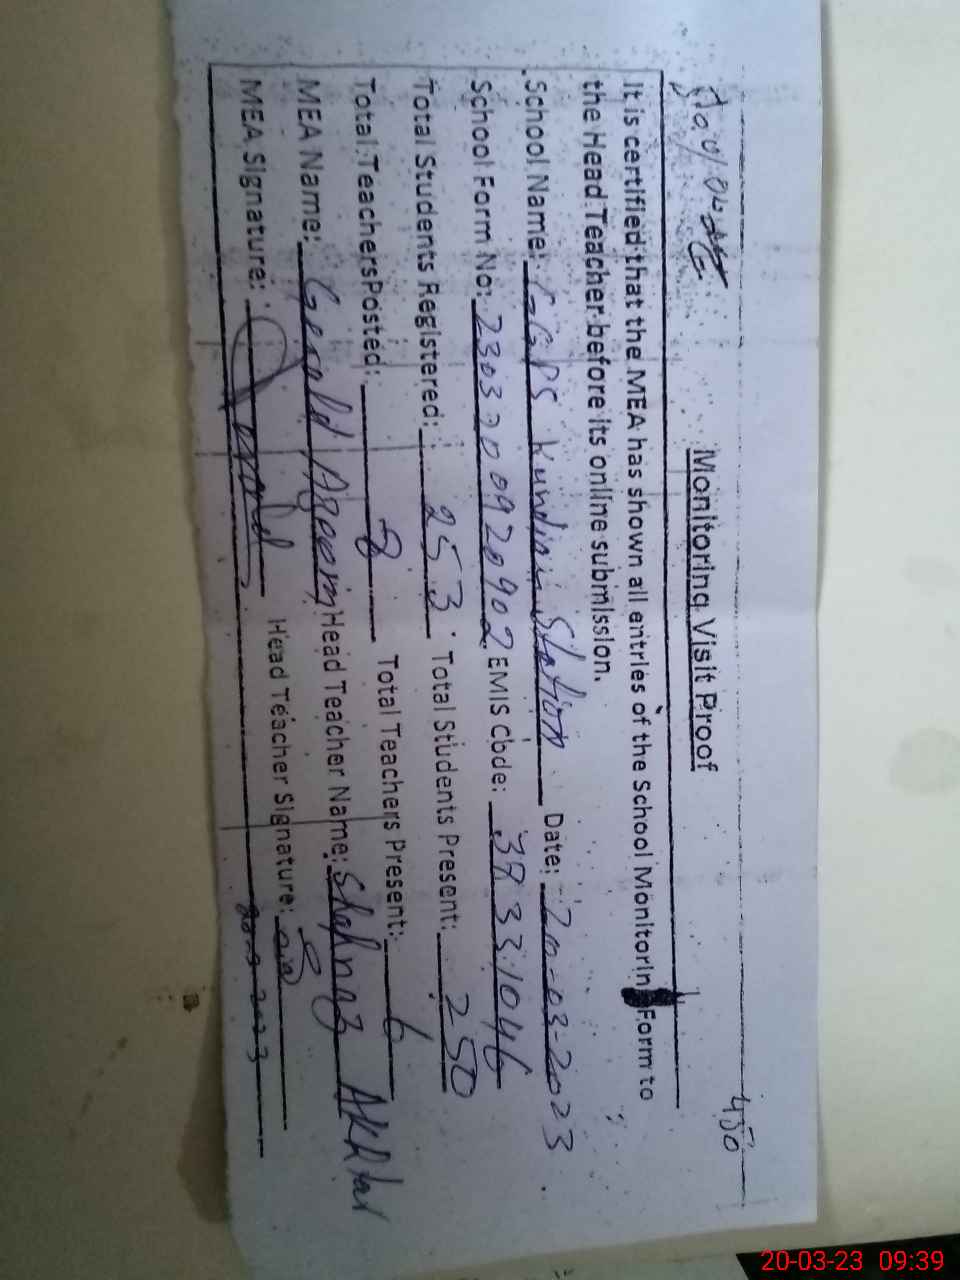 450
Monitoring Visit Proof
It is certified that the MEA has shown all entries of the School Monitorin Form to
the Head Teacher before its online submission.
School Name: GGPS Kundian Station Date: 20-03-2023
School Form No: 2303200920902 EMIS Code: 38331046
Total Students Registered: 253 Total Students Present: 250
Total Teachers Posted: 8 Total Teachers Present: 6
MEA Name: Head Teacher Name: Shahnaz Akhtar
MEA Signature: Head Teacher Signature:
20-3-2023
20-03-23 09:39